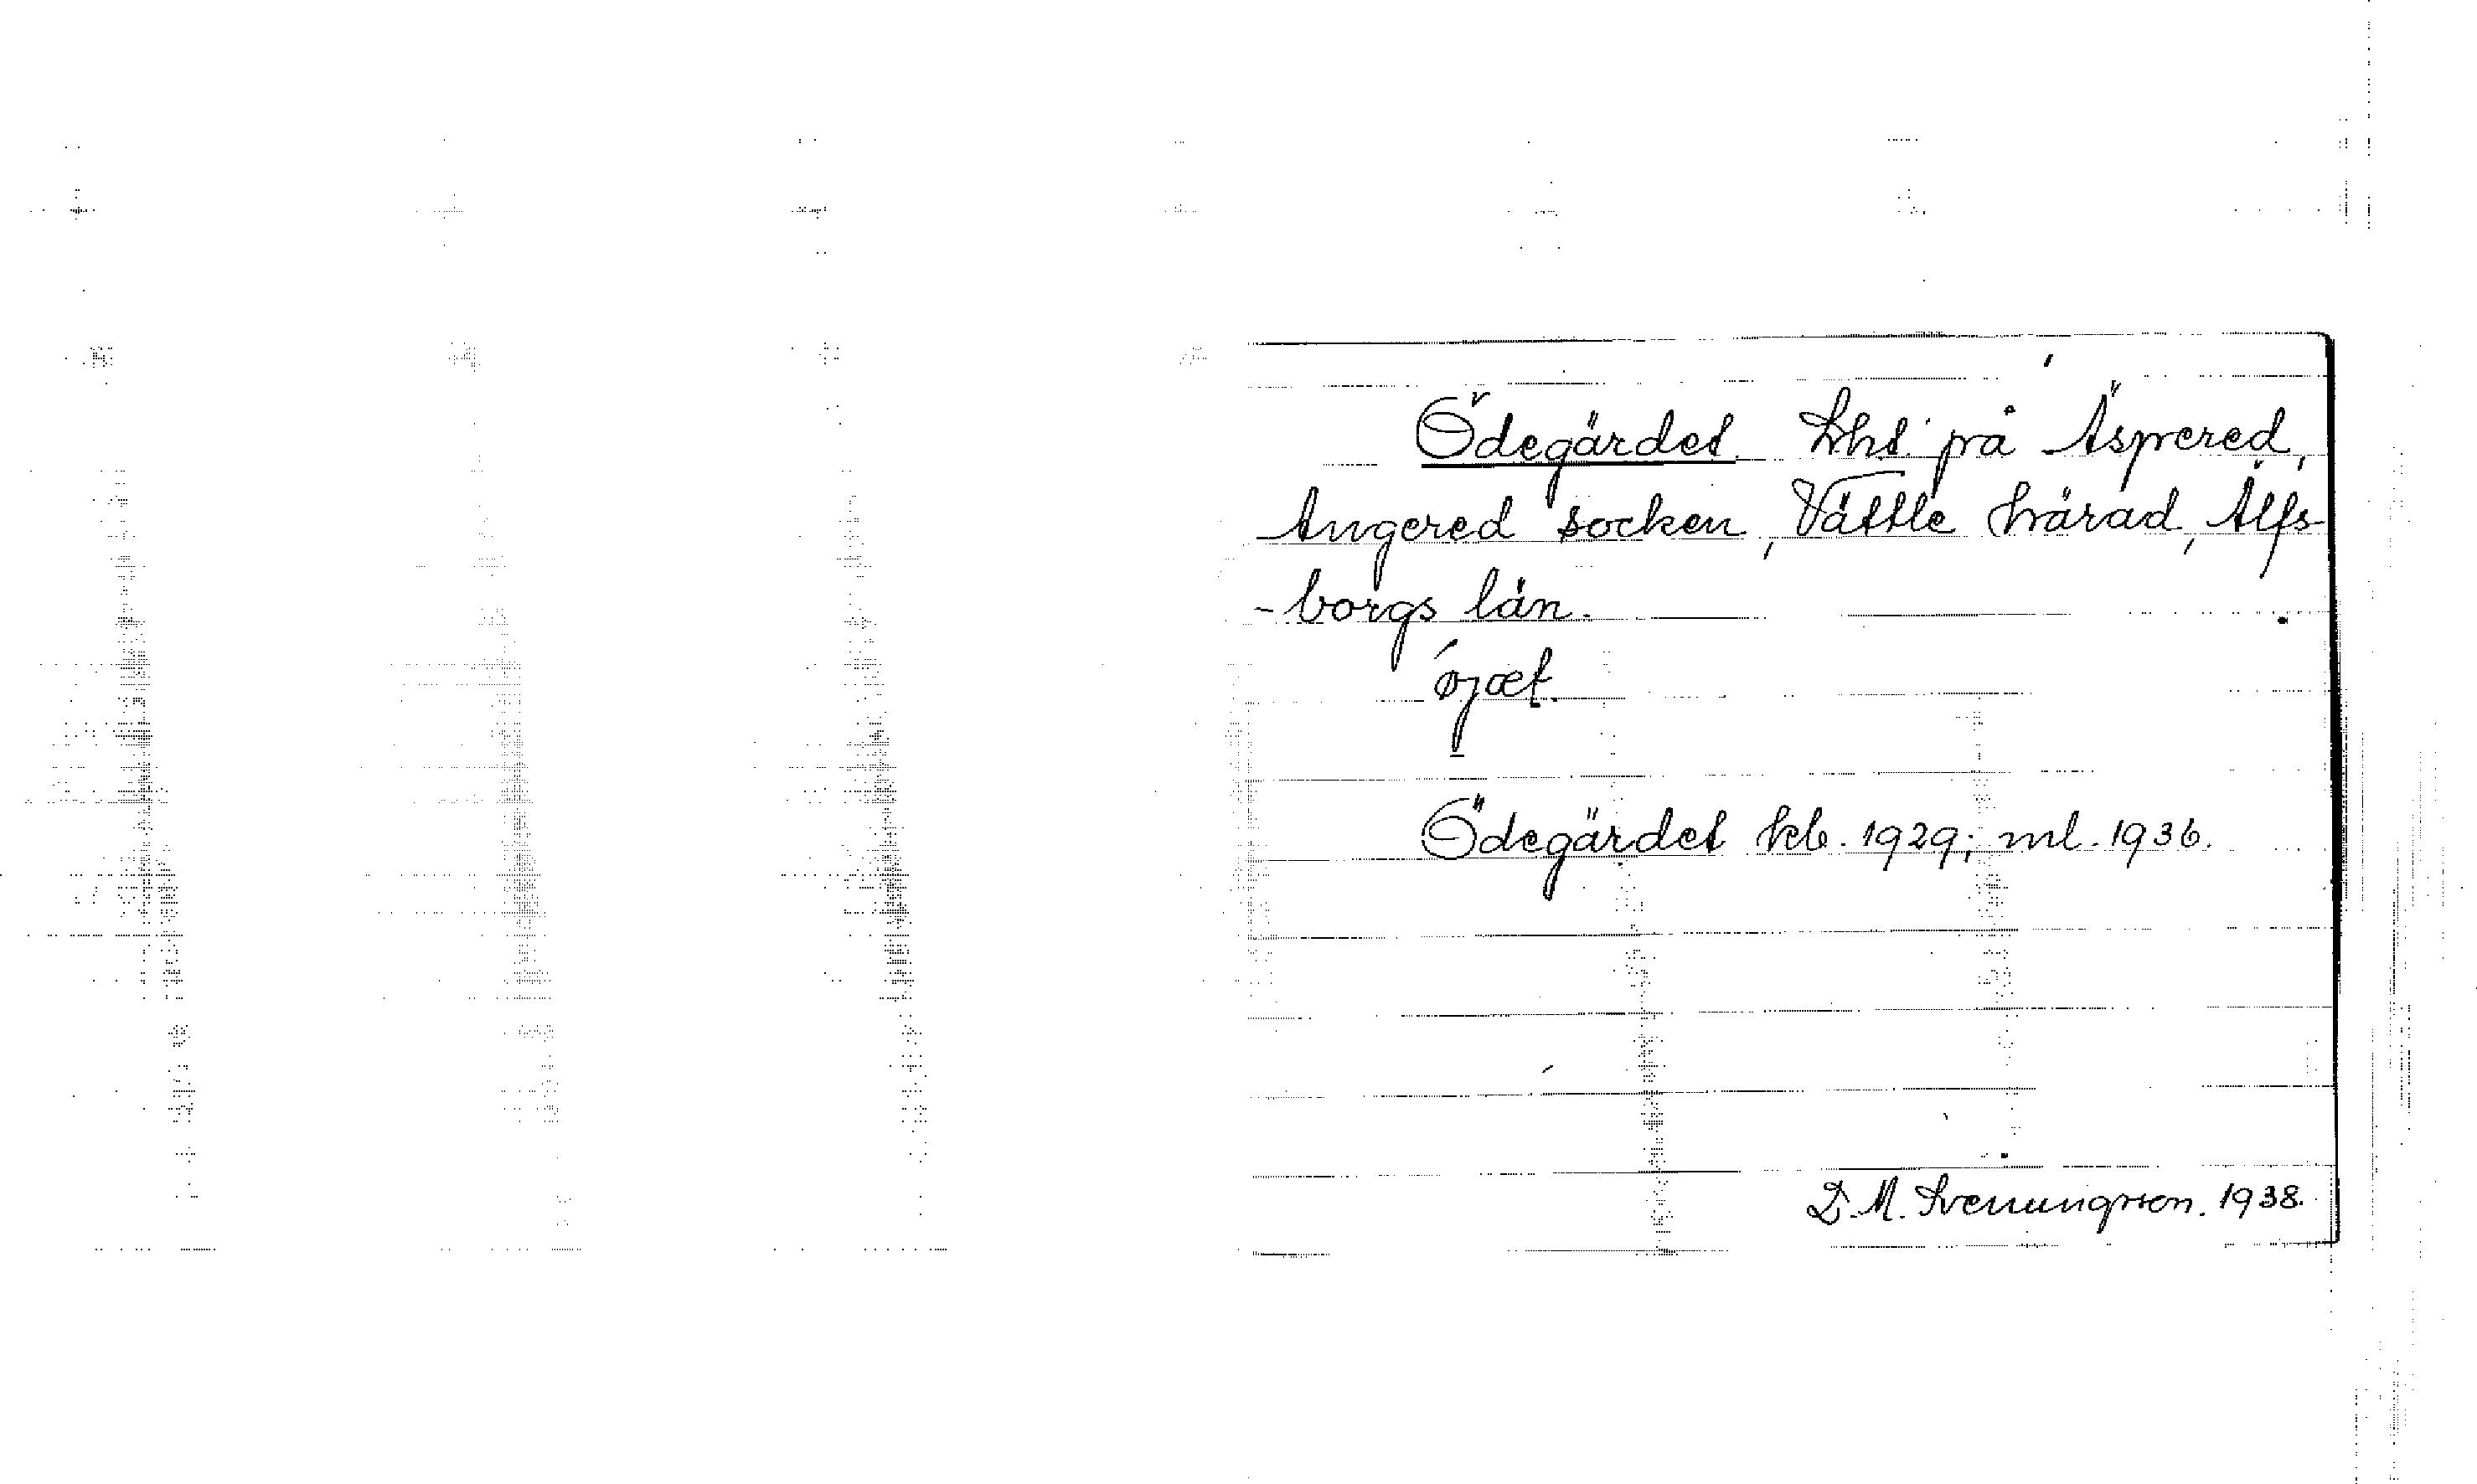 Ödegärdet. Lht. på Äspered,
Angered socken, Vättle härad, Älfs-
-borgs län.
ǿjæt.
Ödegärdet kb. 1929; ml. 1936.
D. M. Svenungsson. 1938.